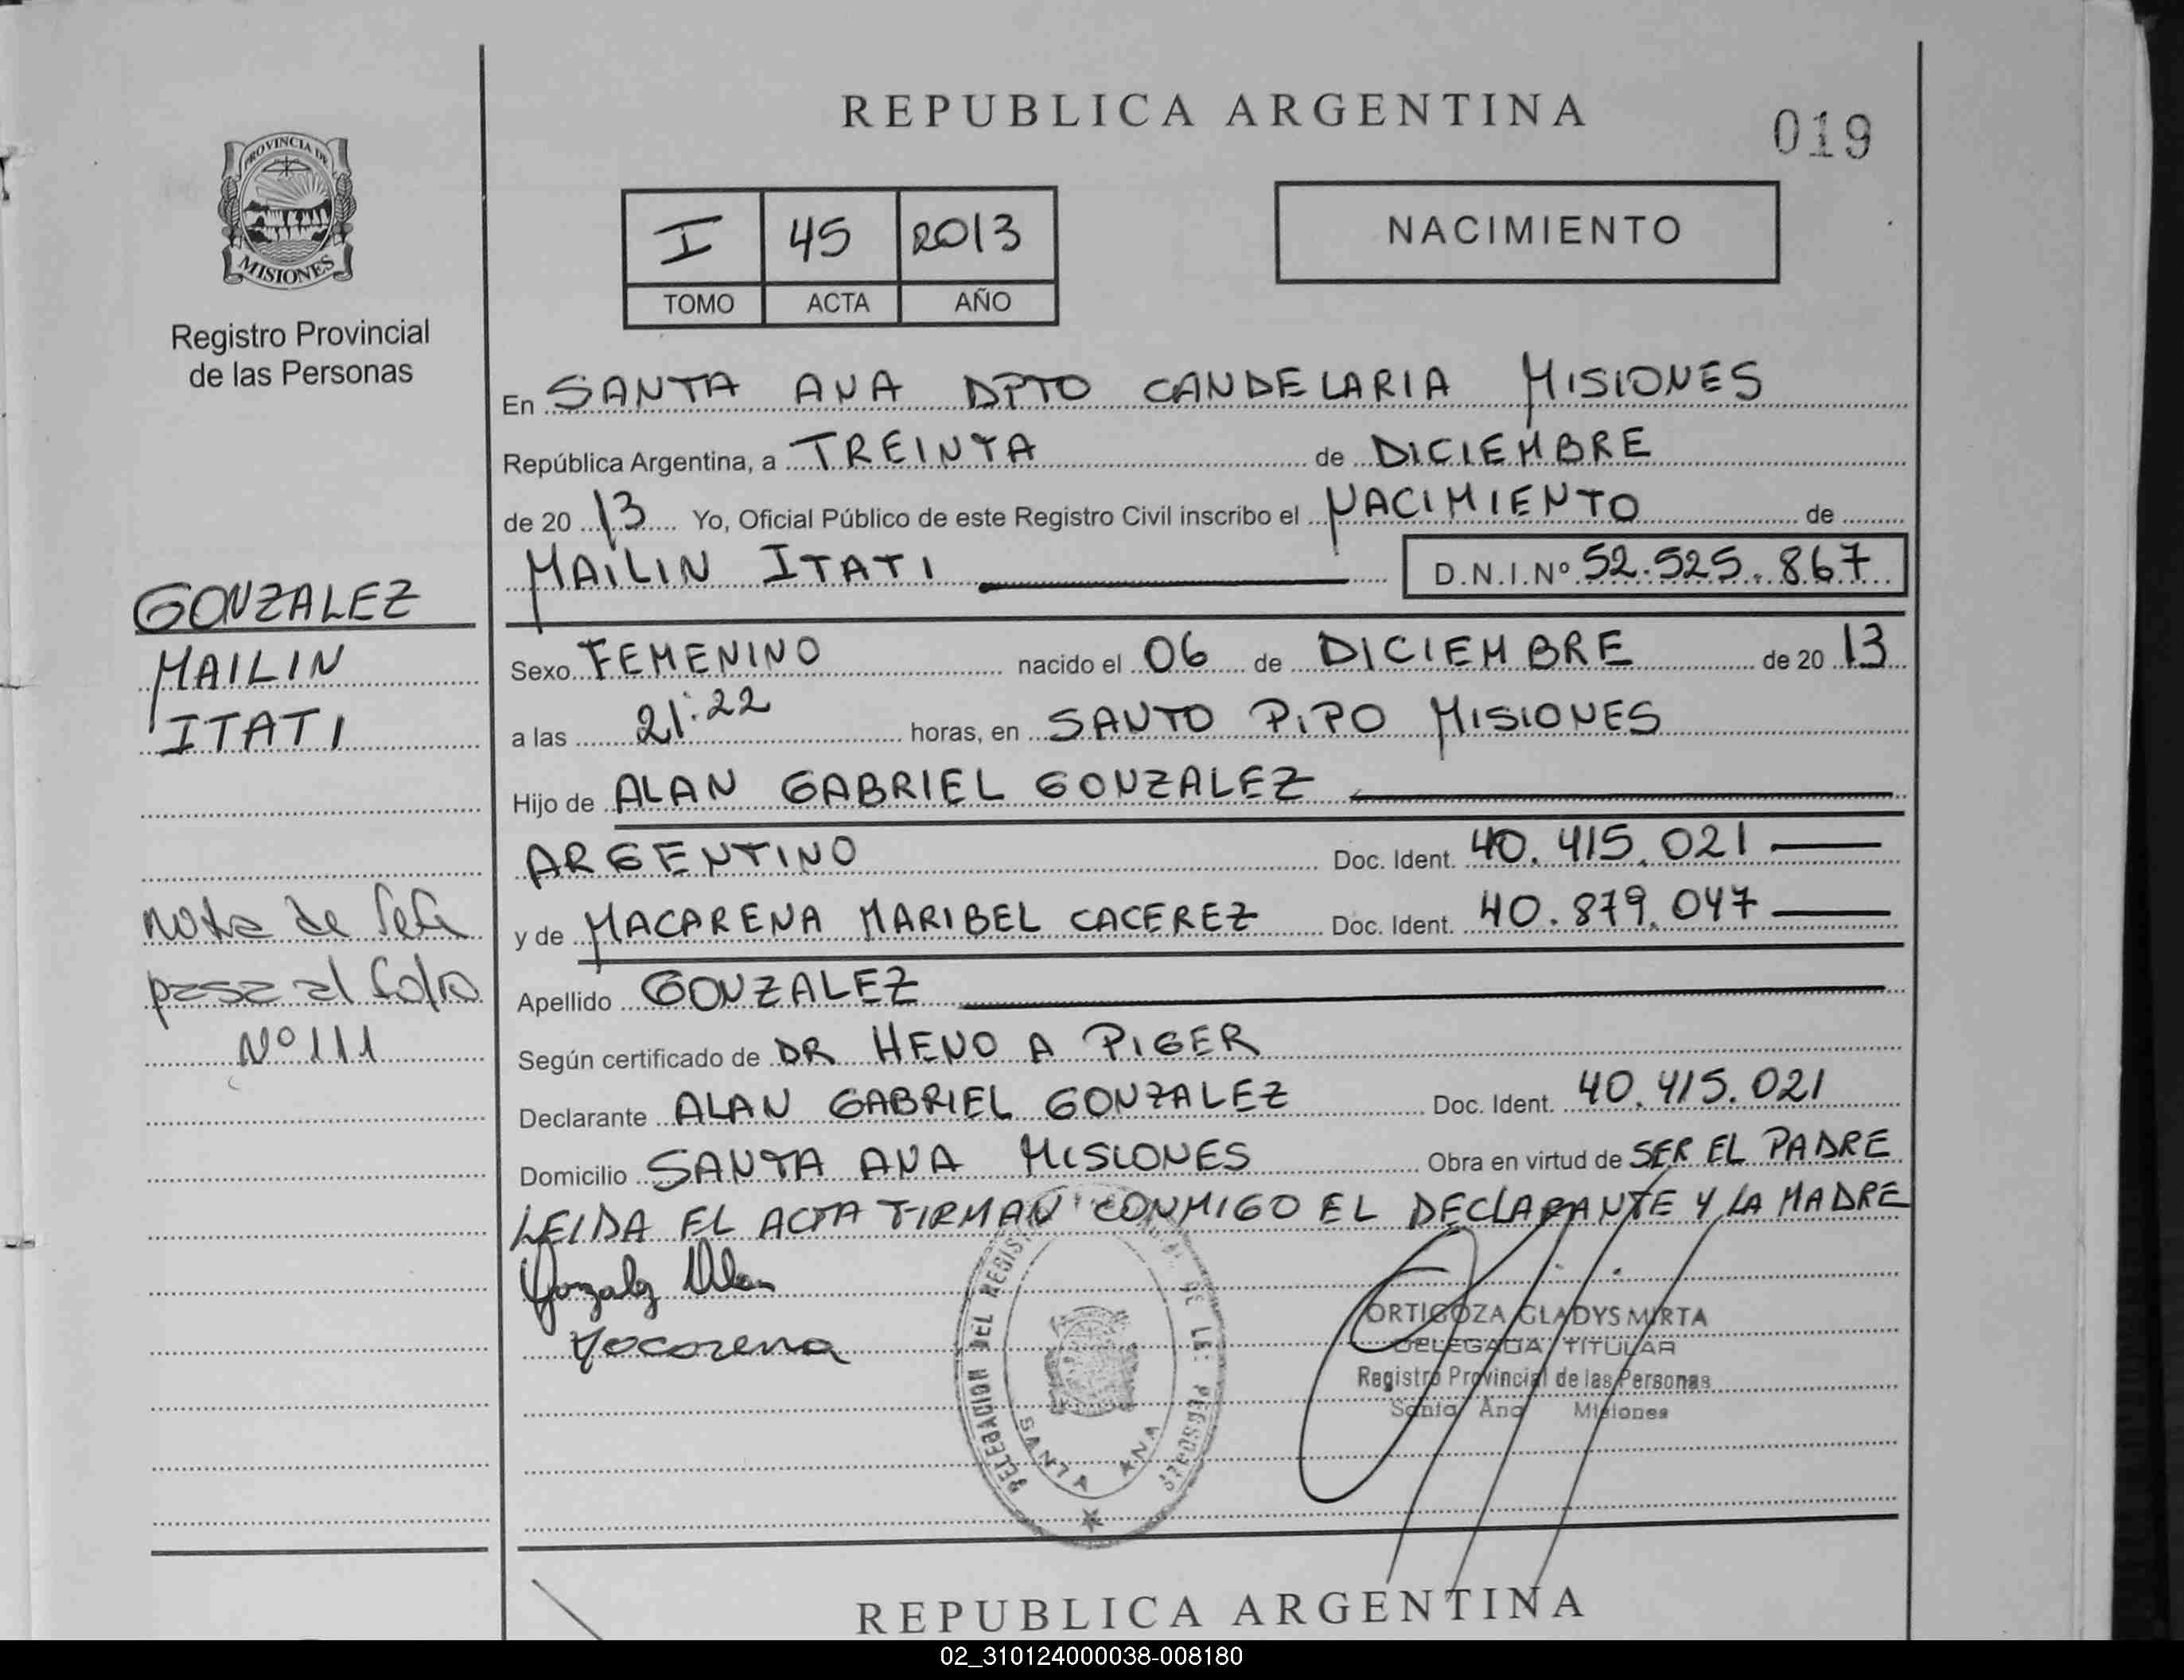 REPUBLICA ARGENTINA
019
PROVINCIA DE
MISIONES
Registro Provincial
de las Personas
I 45 2013
TOMO ACTA AÑO
NACIMIENTO
En SANTA ANA DPTO CANDELARIA MISIONES
República Argentina, a TREINTA de DICIEMBRE
de 20 13 Yo, Oficial Público de este Registro Civil inscribo el NACIMIENTO de
MAILIN ITATI D.N.I.Nº 52.525.867
GONZALEZ
MAILIN
ITATI
Sexo FEMENINO nacido el 06 de DICIEMBRE de 20 13
a las 21:22 horas, en SANTO PIPO MISIONES
Hijo de ALAN GABRIEL GONZALEZ
ARGENTINO Doc. Ident. 40.415.021
y de MACARENA MARIBEL CACEREZ Doc. Ident. 40.879.047
Apellido GONZALEZ
nota de
pasa al folio
Nº 111
Según certificado de DR HENO A PIGER
Declarante ALAN GABRIEL GONZALEZ Doc. Ident. 40.415.021
Domicilio SANTA ANA MISIONES Obra en virtud de SER EL PADRE
LEIDA EL ACTA FIRMAN CONMIGO EL DECLARANTE Y LA MADRE
Gonzalez Alan
Macarena
DELEGACION DEL
SANTA ANA
ORTIGOZA GLADYS MIRTA
DELEGADA TITULAR
Registro Provincial de las Personas
Santa Ana Misiones
REPUBLICA ARGENTINA
02_310124000038-008180